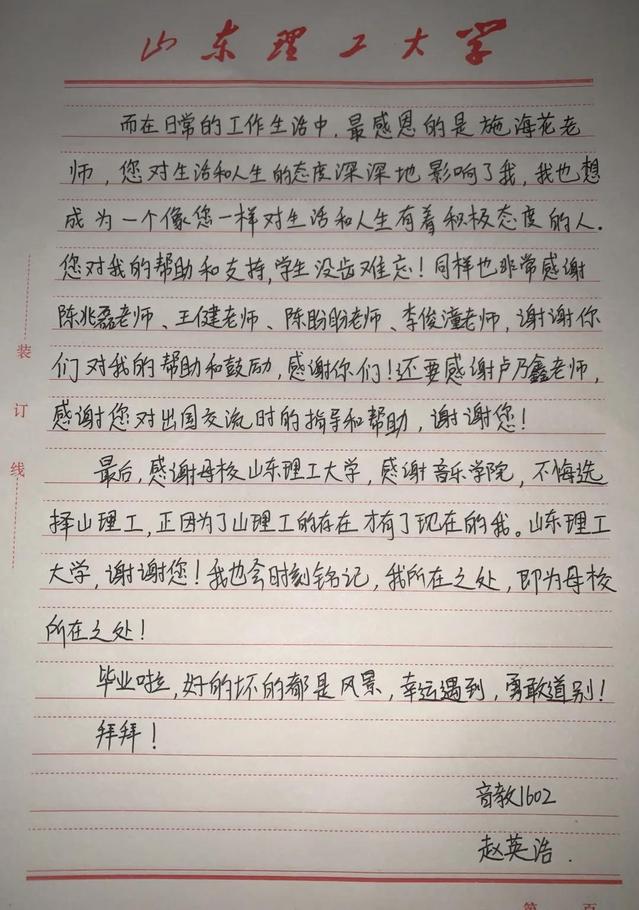 山东理工大学
而在日常的工作生活中，最感恩的是施海花老
师，您对生活和人生的态度深深地影响了我，我也想
成为一个像您一样对生活和人生有着积极态度的人.
您对我的帮助和支持，学生没齿难忘！同样也非常感谢
陈兆磊老师、王健老师、陈盼盼老师、李俊潼老师，谢谢你
们对我的帮助和鼓励，感谢你们！还要感谢卢乃鑫老师，
感谢您对出国交流时的指导和帮助，谢谢您！
最后，感谢母校山东理工大学，感谢音乐学院，不悔选
择山理工，正因为了山理工的存在才有了现在的我。山东理工
大学，谢谢您！我也会时刻铭记，我所在之处，即为母校
所在之处！
毕业啦，好的坏的都是风景，幸运遇到，勇敢道别！
拜拜！
音教1602
赵英浩.
装
订
线
第 页